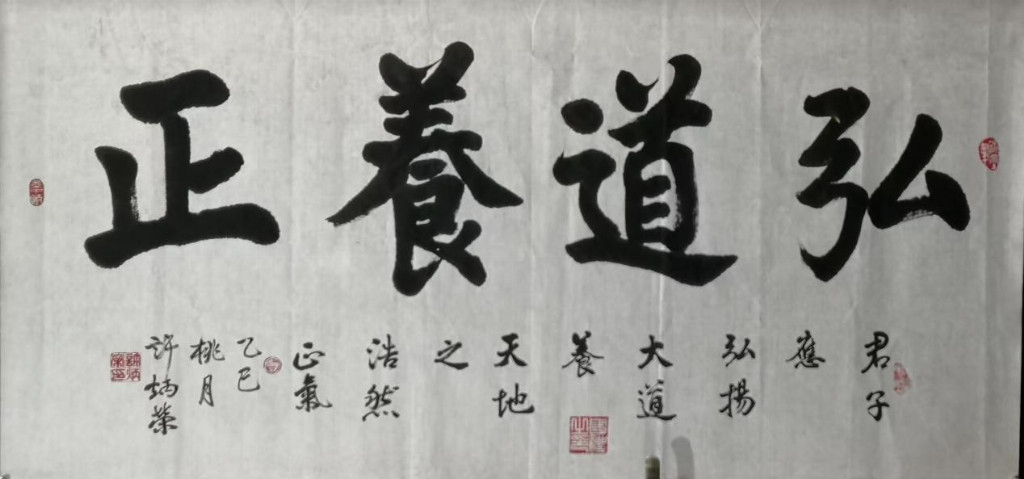 弘道養正
君子
應
弘揚
大道
養
天地
之
浩然
正氣
乙巳
桃月
許炳榮